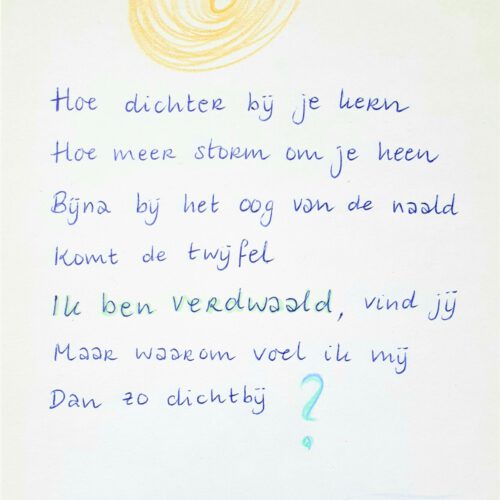 Hoe dichter bij je kern
Hoe meer storm om je heen
Bijna bij het oog van de naald
Komt de twijfel
Ik ben verdwaald, vind jij
Maar waarom voel ik mij
Dan zo dichtbij ?